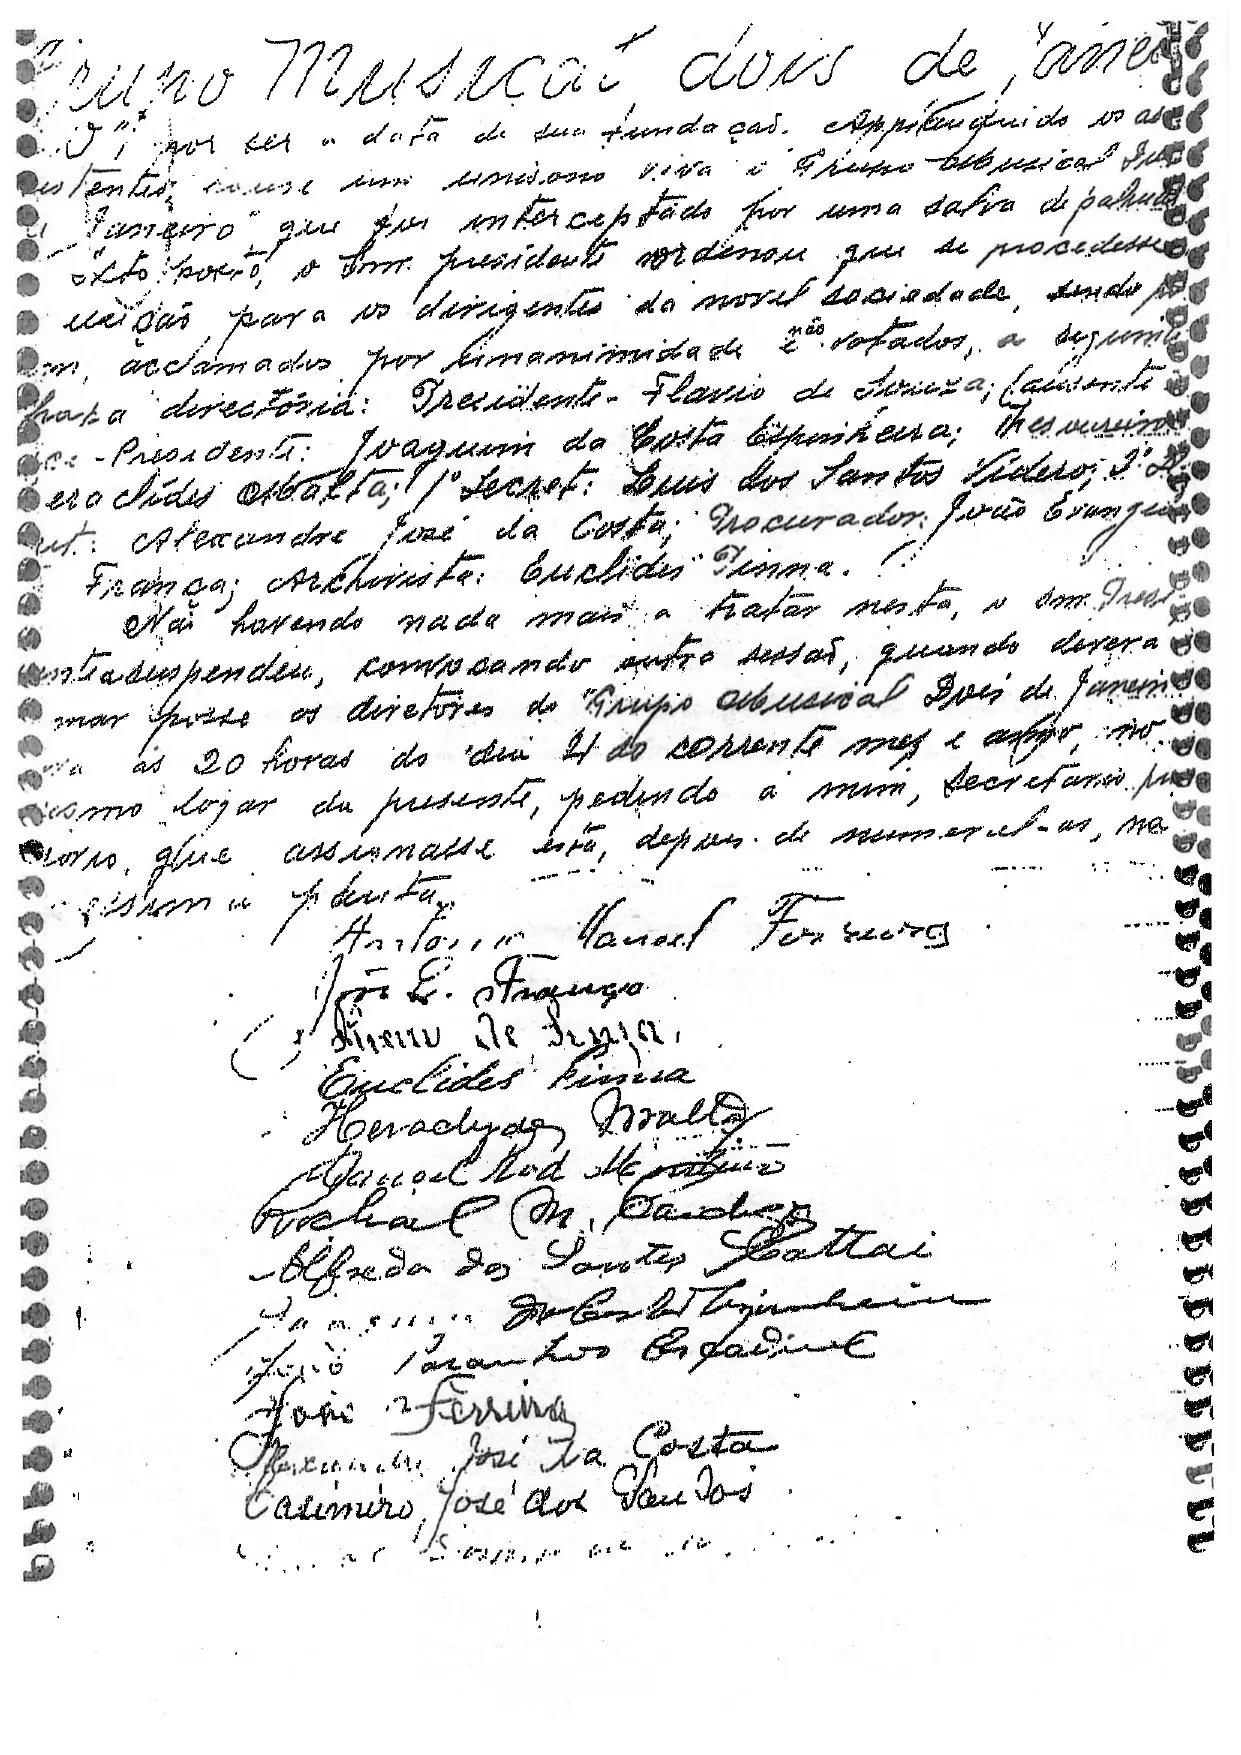 Grupo Musical dois de Janei
por ser a data de sua fundação. Applaudido os as
istentes, ouve um unisono viva o Grupo Musical Dois
Janeiro" que foi interceptado por uma salva de palmas
isto posto, o Snr. presidente ordenou que se procedesse
eleição para os dirigentes da novel sociedade, sendo
acclamados por unanimidade e não votados, a seguinte
directória: Presidente - Flavio de Souza; (ausente
ce-Presidente: Joaquim da Costa Espinheira; Thesoureiro
eraclides Malta; 1º Secret: Luis dos Santos Videro; 2º
ret: Alexandre José da Costa; Procurador: João Evangelis
França; Archivista: Euclides Pinna.
Não havendo nada mais a tratar nesta, o Snr. Presi
ente suspendeu, convocando outra sessão, quando devera
mar posse os diretores do "Grupo Musical Dois de Janeiro
as 20 horas do dia 4 do corrente mez e anno, no
esmo logar da presente, pedindo a mim, secretario pro
sorio, que assignasse esta, depois de numeral-as, na
pauta.
Antonio Manoel
João E. França
de Souza.
Euclides Pinna
Heraclydes Malta
Manoel Rod
M.
Alfredo dos Santos Gattai
da Costa Espinheira
João Paranhos
José Ferreira
Alexandre José da Costa
Casimiro José dos Santos